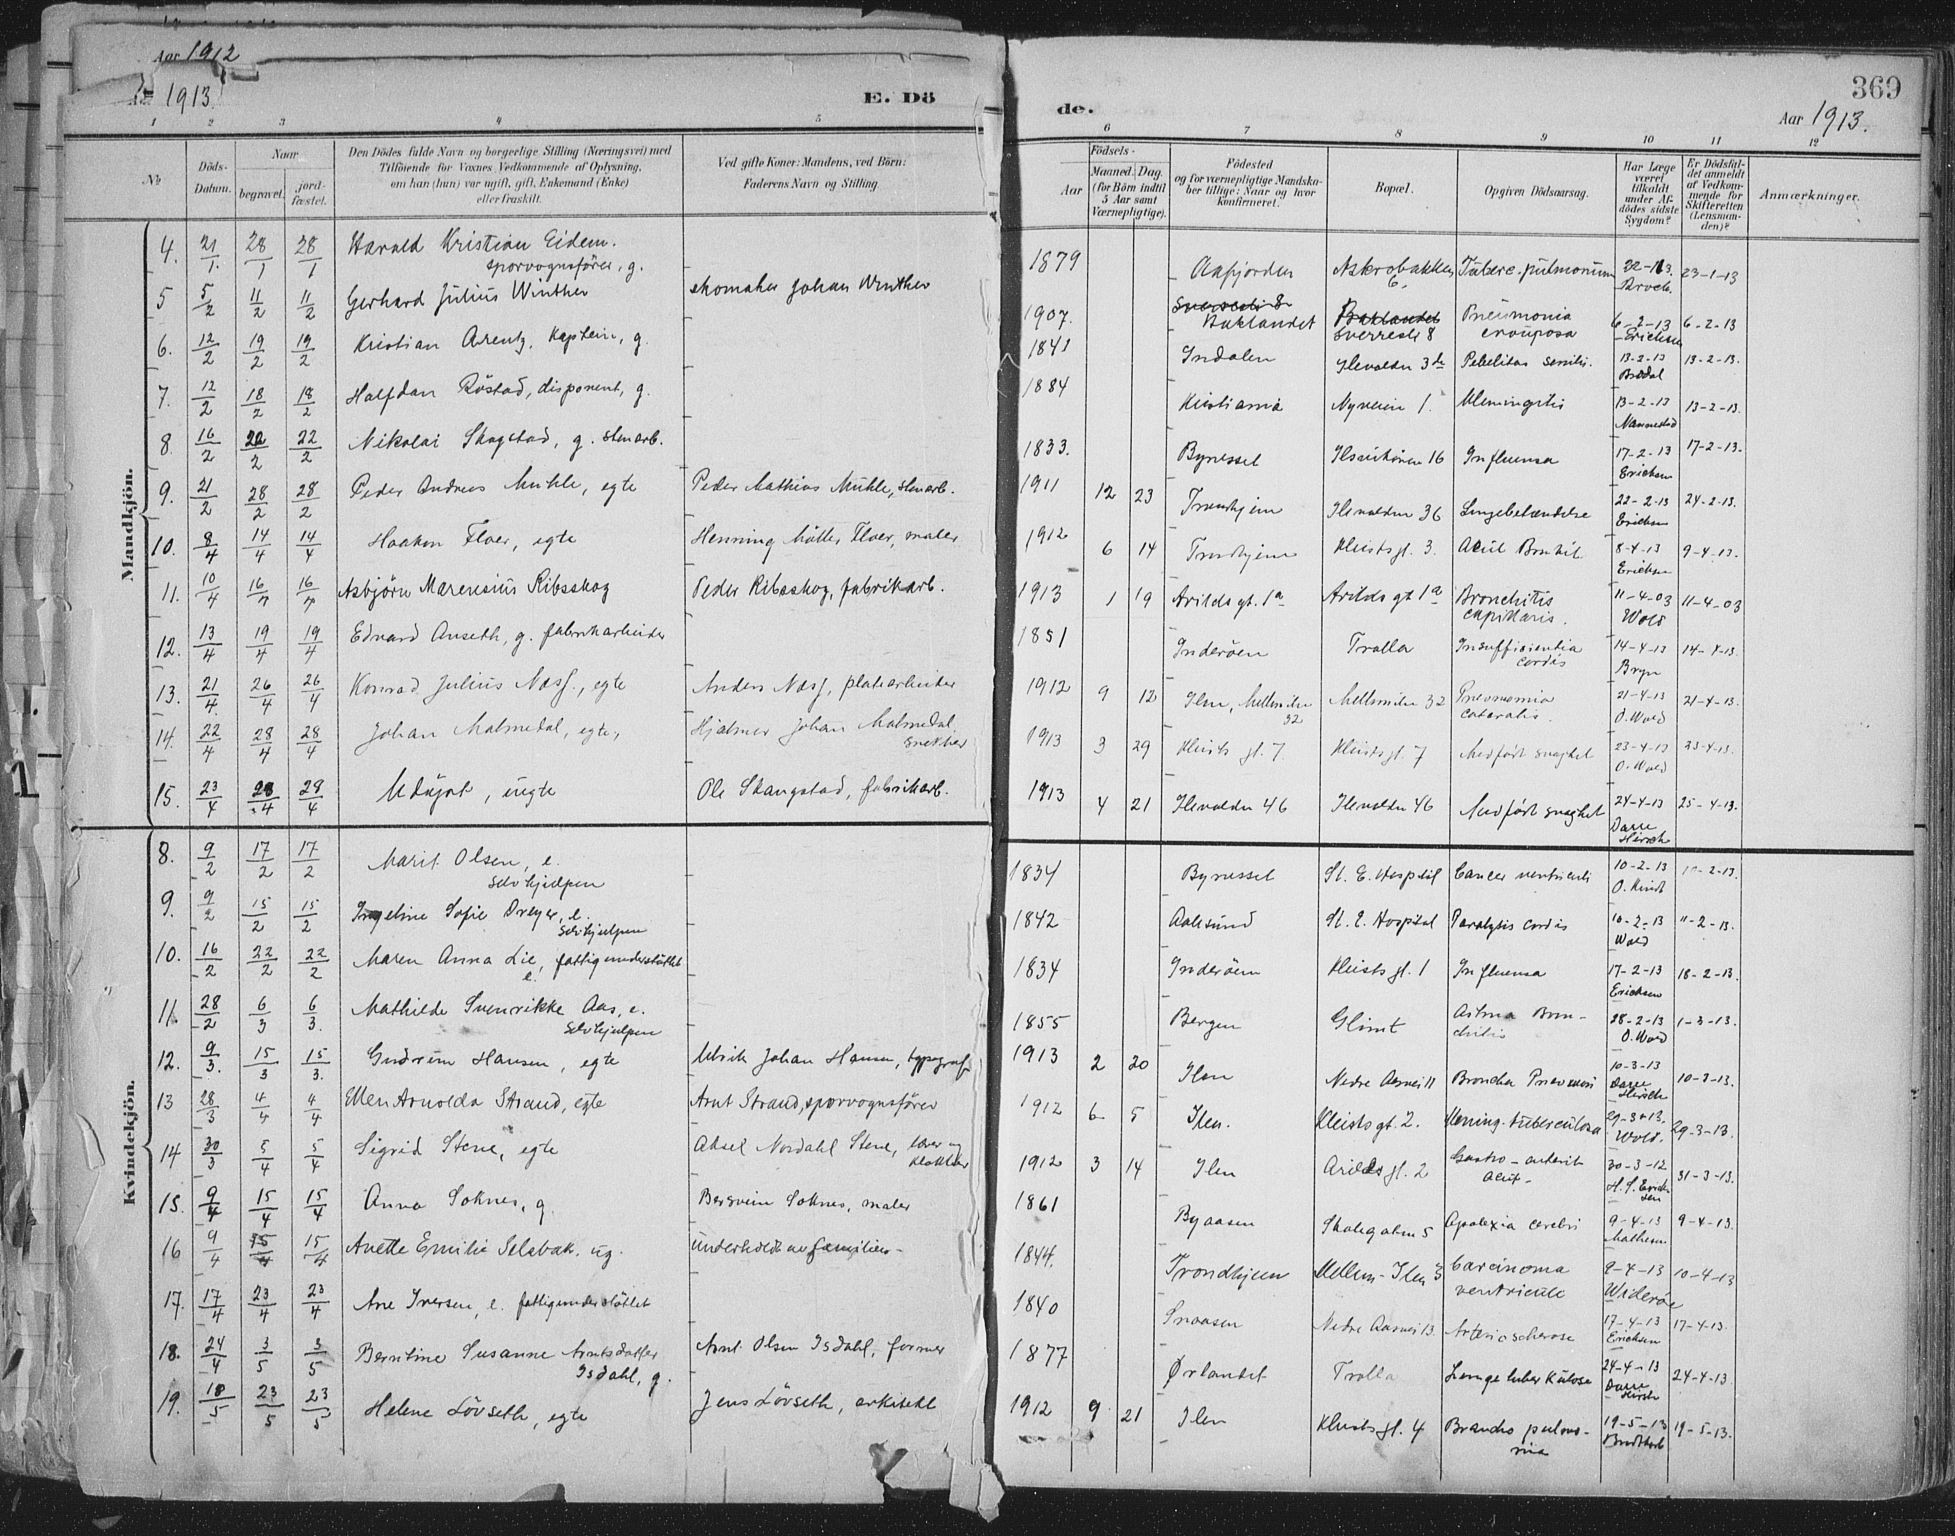 Aar 1912
1913.
E. Dö
de.
369
Aar 1913.
1 2 3 4 5 6 7 8 9 10 11 12
No
Döds-Datum.
Naar
begravet.
jord-fæstet.
Den Dödes fulde Navn og borgerlige Stilling (Næringsvei) med
Tilföiende for Voxnes Vedkommende af Oplysning,
om han (hun) var ugift, gift, Enkemand (Enke)
eller fraskilt.
Ved gifte Koner: Mandens, ved Börn:
Faderens Navn og Stilling.
Födsels-
Aar
Maaned. Dag.
(for Börn indtil
5 Aar samt
Værnepligtige).
Födested
og for værnepligtige Mandska-
ber tillige: Naar og hvor
konfirmeret.
Bopæl.
Opgiven Dödsaarsag.
Har Læge
været
tilkaldt
under Af-
dödes sidste
Sygdom?
Er Dödsfal-
det anmeldt
af Vedkom-
mende for
Skifteretten
(Lensman-
den)?
Anmærkninger.
Mandkjön.
4. 21/1. 28/1 28/1 Harald Kristian Eidem. sporvognsfører, g. 1879 Aafjorden Tuberc. pulmonum 23-1-13
5 5/2 11/2 11/2 Gerhard Julius Winther skomaker Johan Winther 1907. Baklandet Baklandet Sverresli 8 Pneumonia crouposa 6-2-13 Erichsen 6-2-13
6. 12/2 19/2 19/2 Kristian Arentz, kaptein, g. 1841 Indalen Ilevolden 3 Debilitas senilis. 13-2-13 13-2-13.
7. 12/2 18/2 18/2 Halfdan Röstad, disponent, g. 1884 Kristiania Nyveien 1. Meningitis 13-2-13 Nannestad 13-2-13.
8. 16/2 22/2 22/2 Nikolai Skogstad, g. stenarb. 1833. Bynesset Ilsvikören 16 Influensa 17-2-13 Erichsen 17-2-13.
9. 21/2 28/2 28/2 Peder Andreas Muhle, egte Peder Mathias Muhle, stenarb. 1911 12 23 Trondhjem Ilevolden 36 Lungebetændelse 22-2-13 Erichsen 24-2-13.
10. 8/4 14/4 14/4 Haakon Floer, egte Henning Møller Floer, maler 1912 6 14 Trondhjem Kleists gt. 3. Acut Bronkit 8-4-13 Erichsen 9-4-13.
11. 10/4 16/4 16/4 Asbjörn Marensius Ribsskog Peder Ribsskog, fabrikarb. 1913 1 19 Arilds gt. 1a Arilds gt 1a Bronchitis capillaris. 11-4-03 Wold 11-4-03
12. 13/4 19/4 19/4 Edvard Anseth, g. fabrikarbeider 1851 Inderöen Trolla Insufficientia cordis 14-4-13 Bryn 14-4-13.
13. 21/4. 26/4 26/4 Konrad Julius Næss, egte Anders Næss, pladearbeider 1912 9 12 Ilen, Mellemilen 32 Mellemilen 32 Pneumonia cataralis. 21-4-13 O. Wold 21-4-13.
14. 22/4 28/4 28/4 Johan Malmedal, egte, Hjalmar Johan Malmedal, snekker 1913 3 29 Kleists gt. 7 Kleists gt. 7 Medfødt svaghet 23-4-13 O. Wold 23-4-13.
15. 23/4 28/4 28/4 Udøpt, uegte Ole Skangstad, fabrikarb. 1913 4 21 Ilevolden 46 Ilevolden 46 Medfødt svaghet 24-4-13 Darre Hirsch 25-4-13.
Kvindekjön.
8. 9/2 17/2 17/2 Marit Olsen, e. Selvhjelpen 1834 Bynesset St. E. Hospital Cancer ventriculi 10-2-13
9. 9/2 15/2 15/2 Ingeline Sofie Dreyer, e. Selvhjelpen 1842 Aalesund St. E. Hospital Paralysis cordis 10-2-13 Wold 11-2-13.
10. 16/2 22/2 22/2 Maren Anna Lie, fattigunderstøttet e. 1834 Inderöen Kleists gt. 1 Influensa 17-2-13 Erichsen 18-2-13.
11. 28/2 6/3 6/3. Mathilde Svenrikke Aas, e. Selvhjelpen 1855 Bergen Glimt Astma Bronchitis 28-2-13 O. Wold 1-3-13.
12. 9/3. 15/3 15/3. Gudrun Hansen, egte Ulrik Johan Hansen, typograf 1913 2 20 Ilen Nedre Aasvei 11 Broncho Pneumoni 10-3-13 Darre Hirsch 10-3-13.
13 28/3 4/4 4/4 Ellen Arnolda Strand, egte Arnt Strand, sporvognsfører 1912 6 5 Ilen. Kleists gt. 2. Mening. tuberculosa 29-3-13. Wold. 29-3-13.
14 30/3 5/4 5/4 Sigrid Stene, egte Aksel Nordahl Stene, lærer og klokker 1912 3 14 Ilen Arilds gt. 2 Gastro-enterit acut- 30-3-12 H. S. Erichsen 31-3-13.
15. 9/4 15/4 15/4 Anna Soknes, g. Bersvein Soknes, maler 1861 Byaasen Skolegaten 5 Apoplexia cerebri 9-4-13 Mathesen 9-4-13.
16 9/4 15/4 15/4 Anette Emilie Selsbak, ug. underholdt av familien- 1844. Trondhjem Mellem-Ilen 3 Carcinoma ventricule 9-4-13 Widerøe 10-4-13
17. 17/4 23/4 23/4 Ane Iversen, e. fattigunderstøttet 1840 Snaasen Nedre Aasvei 13. Arterioscherose 17-4-13 Erichsen 17-4-13.
18. 24/4 3/5 3/5 Berntine Susanne Arntsdatter Isdahl, g. Arnt Olsen Isdahl, former 1877 Ørlandet Trolla Lungetuberkulose 24-4-13 Darre Hirsch 24-4-13
19. 18/5 23/5 23/5 Helene Lövseth, egte Jens Lövseth, arkitekt 1912 9 21 Ilen Kleists gt. 4 Broncho pulmonia 19-5-13 19-5-13.